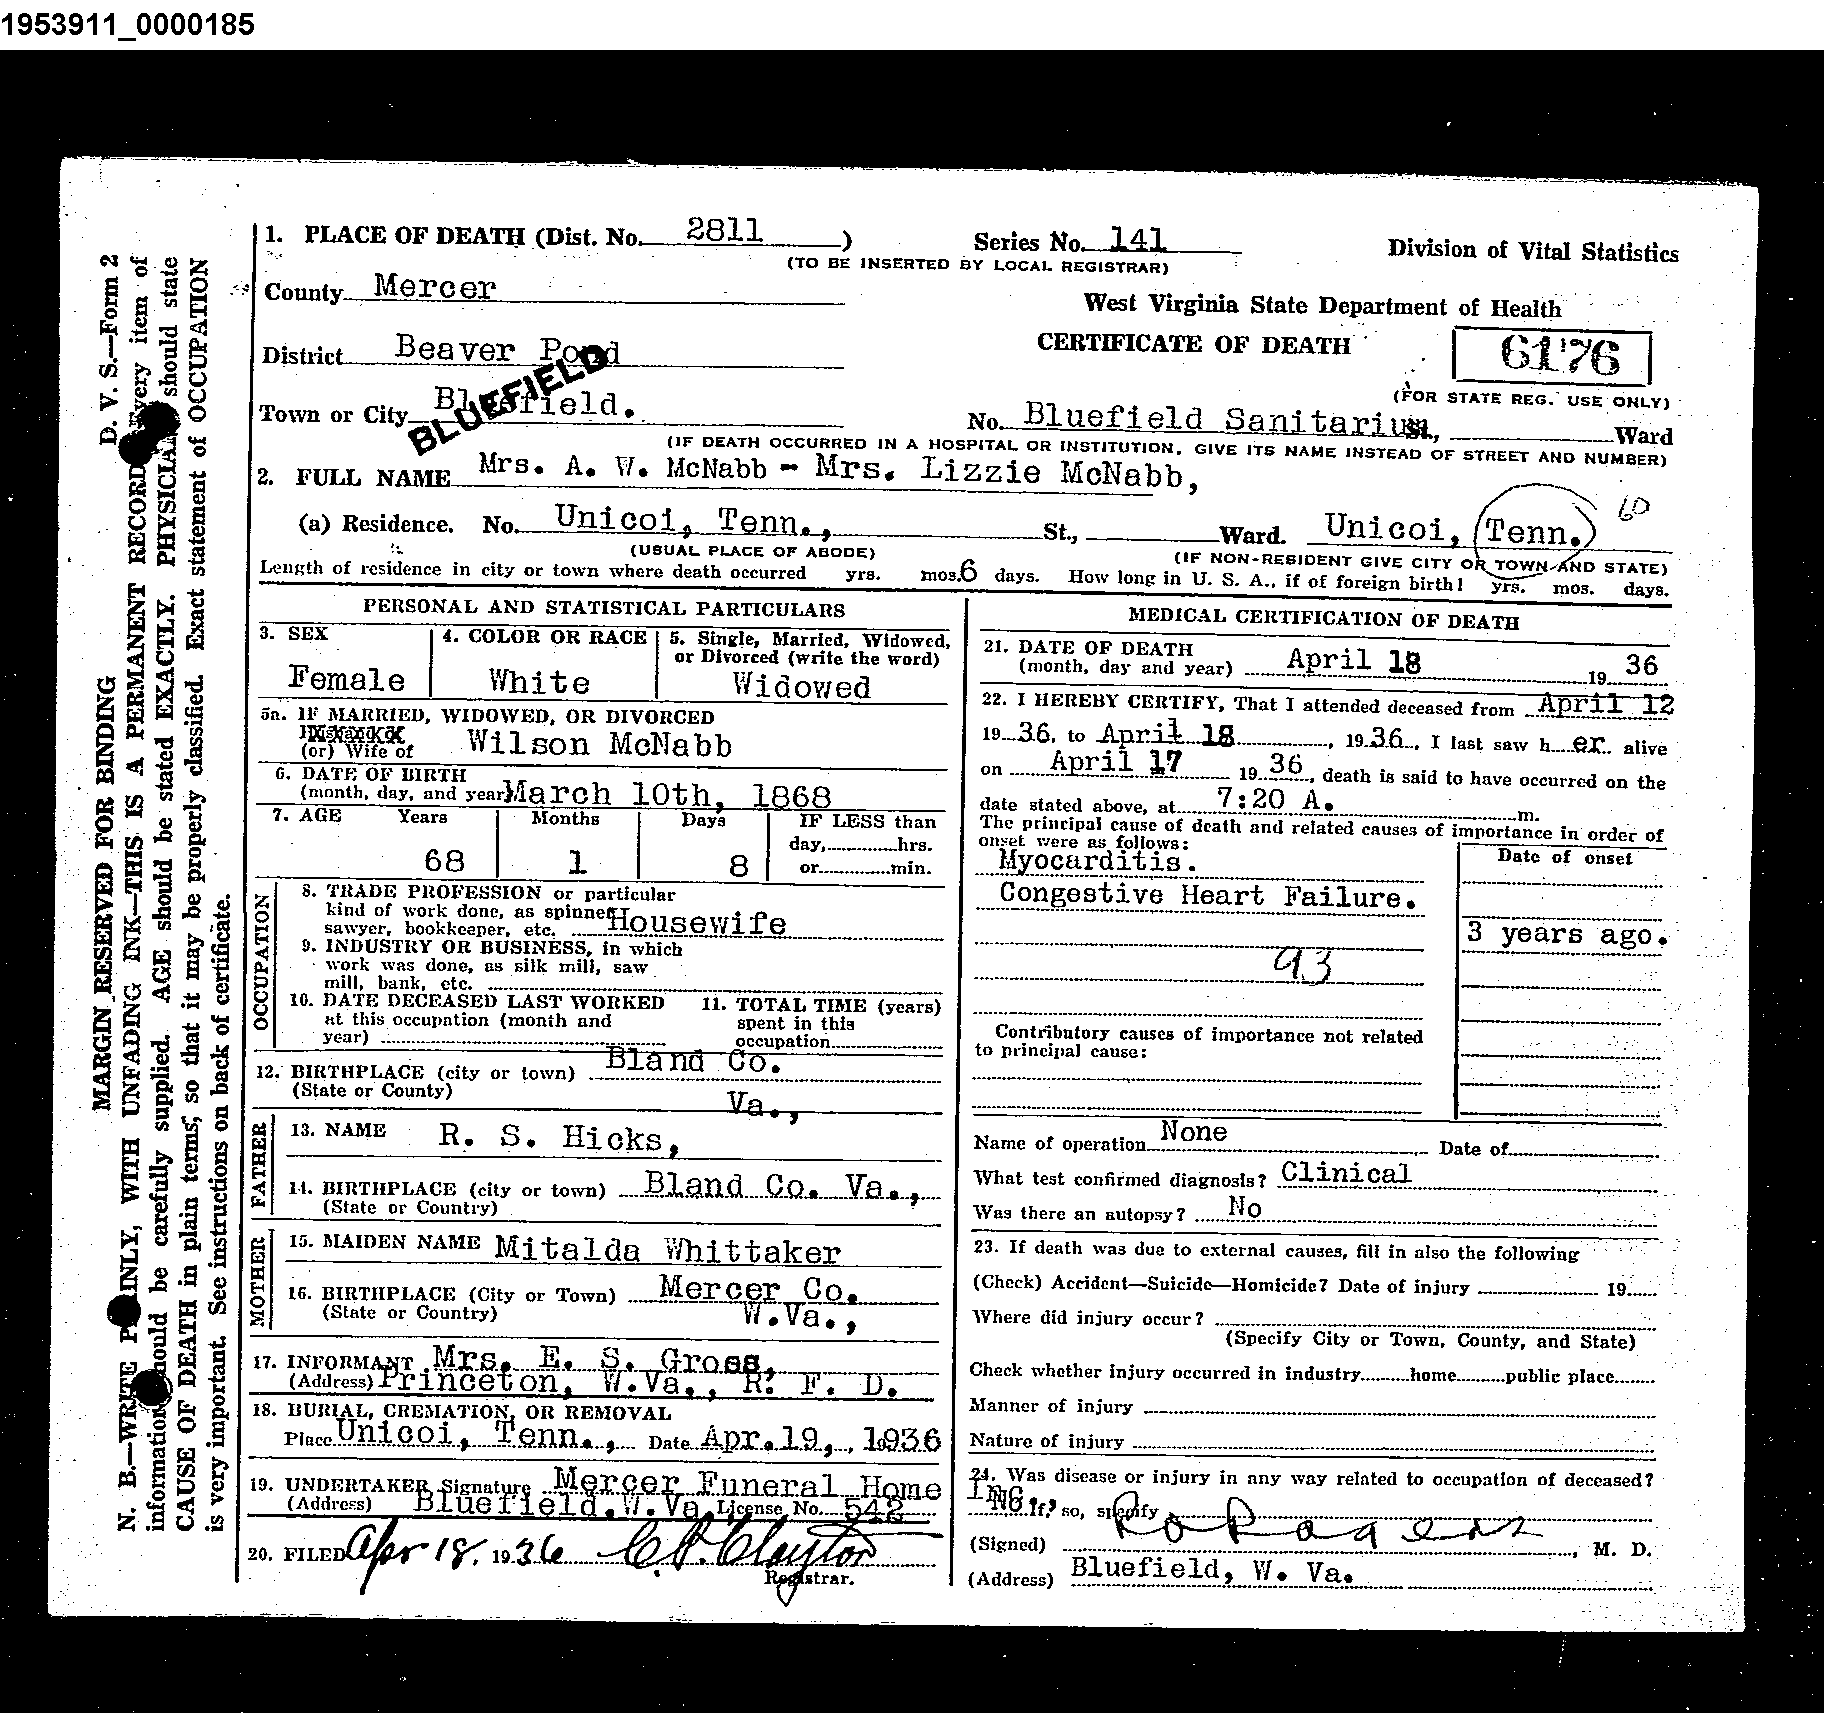 1953911_0000185
1. PLACE OF DEATH (Dist. No. 2811 )
Series No. 141
(TO BE INSERTED BY LOCAL REGISTRAR)
Division of Vital Statistics
County Mercer
West Virginia State Department of Health
District Beaver Pond
CERTIFICATE OF DEATH
6176
(FOR STATE REG. USE ONLY)
Town or City Bluefield.
BLUEFIELD
No. Bluefield Sanitarium St., Ward
(IF DEATH OCCURRED IN A HOSPITAL OR INSTITUTION, GIVE ITS NAME INSTEAD OF STREET AND NUMBER)
2. FULL NAME Mrs. A. W. McNabb - Mrs. Lizzie McNabb,
(a) Residence. No. Unicoi, Tenn., St., Ward. Unicoi, Tenn. 60
(USUAL PLACE OF ABODE) (IF NON-RESIDENT GIVE CITY OR TOWN AND STATE)
Length of residence in city or town where death occurred yrs. mos. 6 days. How long in U. S. A., if of foreign birth? yrs. mos. days.
PERSONAL AND STATISTICAL PARTICULARS
3. SEX
Female
4. COLOR OR RACE
White
5. Single, Married, Widowed,
or Divorced (write the word)
Widowed
5a. IF MARRIED, WIDOWED, OR DIVORCED
(or) Wife of Wilson McNabb
6. DATE OF BIRTH
(month, day, and year) March 10th, 1868
7. AGE Years Months Days IF LESS than
day, hrs.
68 1 8 or min.
OCCUPATION
8. TRADE PROFESSION or particular
kind of work done, as spinner,
sawyer, bookkeeper, etc. Housewife
9. INDUSTRY OR BUSINESS, in which
work was done, as silk mill, saw
mill, bank, etc.
10. DATE DECEASED LAST WORKED
at this occupation (month and
year)
11. TOTAL TIME (years)
spent in this
occupation
12. BIRTHPLACE (city or town) Bland Co.
(State or County) Va.,
FATHER
13. NAME R. S. Hicks,
14. BIRTHPLACE (city or town) Bland Co. Va.,
(State or Country)
MOTHER
15. MAIDEN NAME Mitalda Whittaker
16. BIRTHPLACE (City or Town) Mercer Co.
(State or Country) W.Va.,
17. INFORMANT Mrs. E. S. Gross,
(Address) Princeton, W.Va., R. F. D.
18. BURIAL, CREMATION, OR REMOVAL
Place Unicoi, Tenn., Date Apr. 19, 1936
19. UNDERTAKER Signature Mercer Funeral Home
(Address) Bluefield, W. Va. License No. 542
20. FILED Apr 18, 1936 C. P. Clayton
Registrar.
MEDICAL CERTIFICATION OF DEATH
21. DATE OF DEATH
(month, day and year) April 18 1936
22. I HEREBY CERTIFY, That I attended deceased from April 12
1936, to April 18, 1936, I last saw her alive
on April 17 1936, death is said to have occurred on the
date stated above, at 7:20 A. m.
The principal cause of death and related causes of importance in order of
onset were as follows:
Date of onset
Myocarditis.
Congestive Heart Failure.
3 years ago.
93
Contributory causes of importance not related
to principal cause:
Name of operation None Date of
What test confirmed diagnosis? Clinical
Was there an autopsy? No
23. If death was due to external causes, fill in also the following
(Check) Accident—Suicide—Homicide? Date of injury 19
Where did injury occur?
(Specify City or Town, County, and State)
Check whether injury occurred in industry home public place
Manner of injury
Nature of injury
24. Was disease or injury in any way related to occupation of deceased?
Inc.,
No. If so, specify
(Signed) , M. D.
(Address) Bluefield, W. Va.
D. V. S.—Form 2
MARGIN RESERVED FOR BINDING
N. B.—WRITE PLAINLY, WITH UNFADING INK—THIS IS A PERMANENT RECORD. Every item of
information should be carefully supplied. AGE should be stated EXACTLY. PHYSICIANS should state
CAUSE OF DEATH in plain terms, so that it may be properly classified. Exact statement of OCCUPATION
is very important. See instructions on back of certificate.